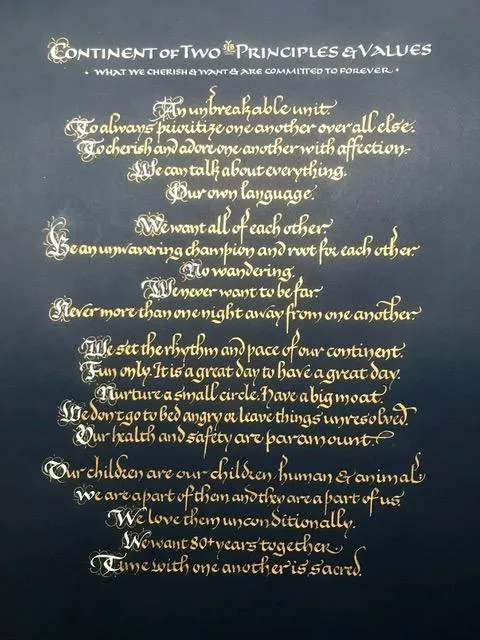 CONTINENT OF TWO PRINCIPLES & VALUES
• WHAT WE CHERISH & WANT & ARE COMMITTED TO FOREVER •
An unbreakable unit.
To always prioritize one another over all else.
To cherish and adore one another with affection.
We can talk about everything.
Our own language.
We want all of each other.
Be an unwavering champion and root for each other.
No wandering.
We never want to be far.
Never more than one night away from one another.
We set the rhythm and pace of our continent.
Fun only. It is a great day to have a great day.
Nurture a small circle. Have a big moat.
We don't go to bed angry or leave things unresolved.
Our health and safety are paramount.
Our children are our children human & animal
we are a part of them and they are a part of us.
We love them unconditionally.
We want 80+ years together.
Time with one another is sacred.